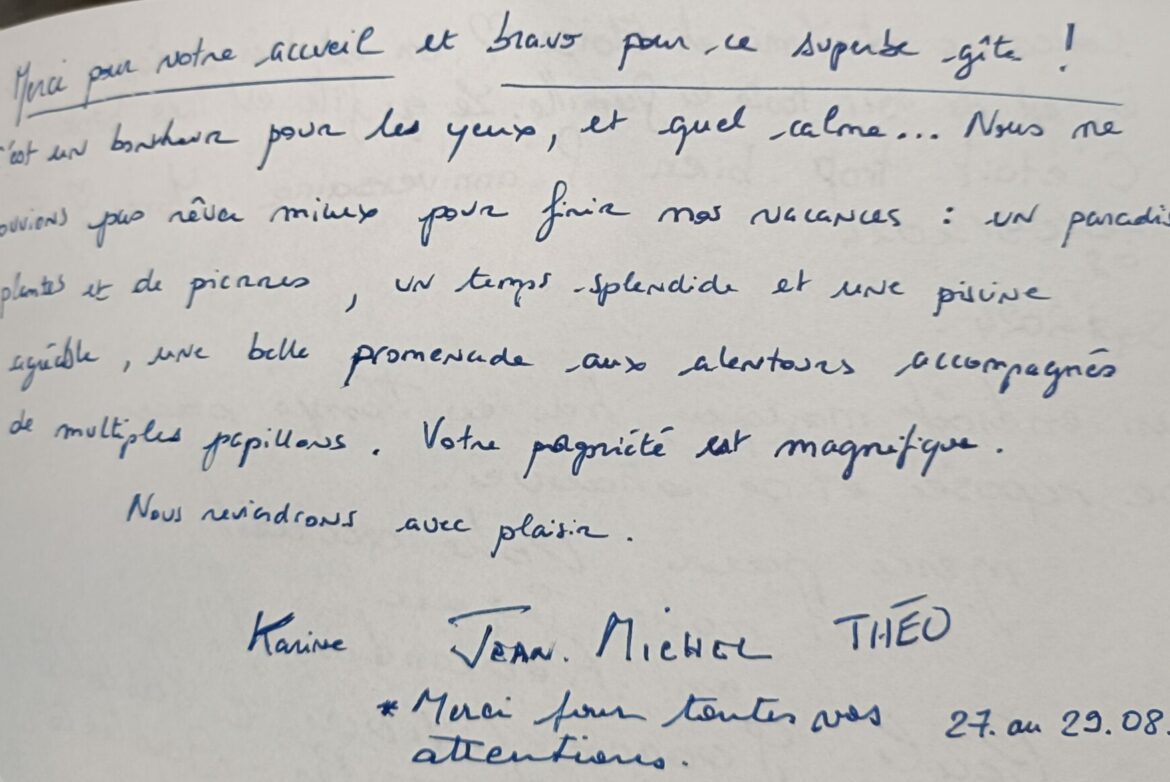 Merci pour votre accueil et bravo pour ce superbe gîte !
c'est un bonheur pour les yeux, et quel calme... Nous ne
ouvions pas rêver mieux pour finir nos vacances : un paradis
plantes et de pierres, un temps splendide et une piscine
agréable, une belle promenade aux alentours accompagnés
de multiples papillons. Votre propriété est magnifique.
Nous reviendrons avec plaisir.
Karine JEAN. MICHEL THÉO
* Merci pour toutes vos
attentions.
27. au 29.08.